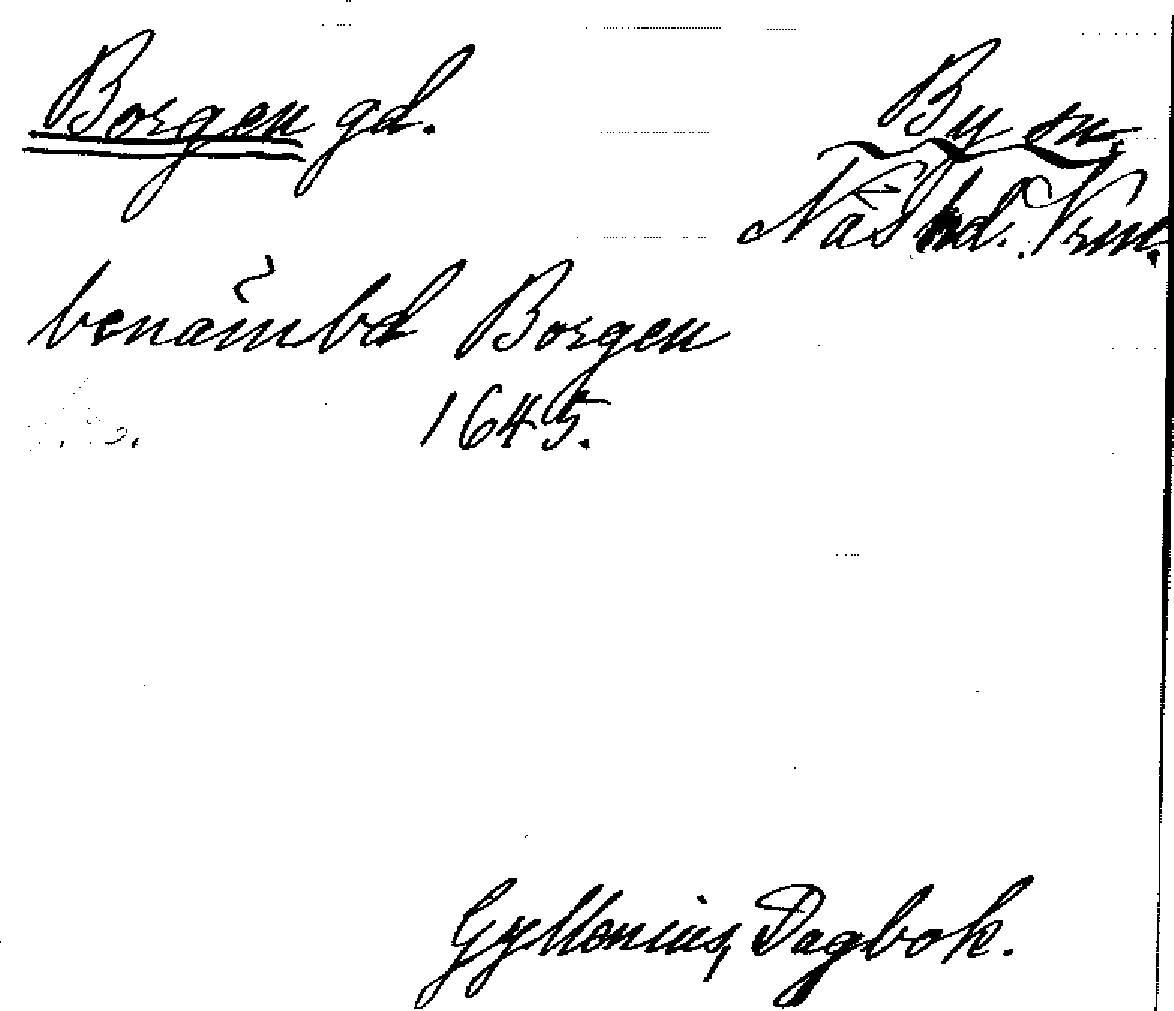 Borgen gd.
By sn,
Näs hd. Vrm.
benämbd Borgen
1645.
Gyllenius, Dagbok.